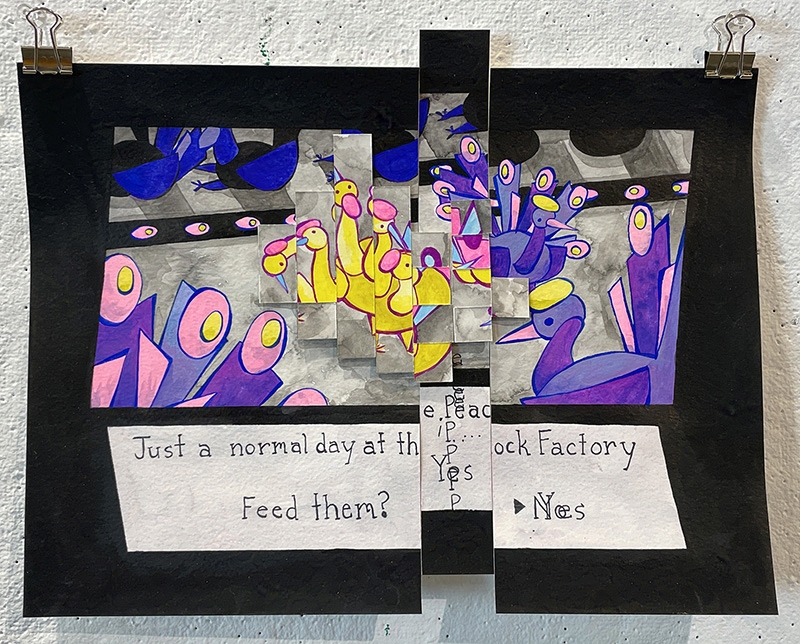 Just a normal day at the Peacock Factory
P....
P
Yes
P
P
Feed them? ▶